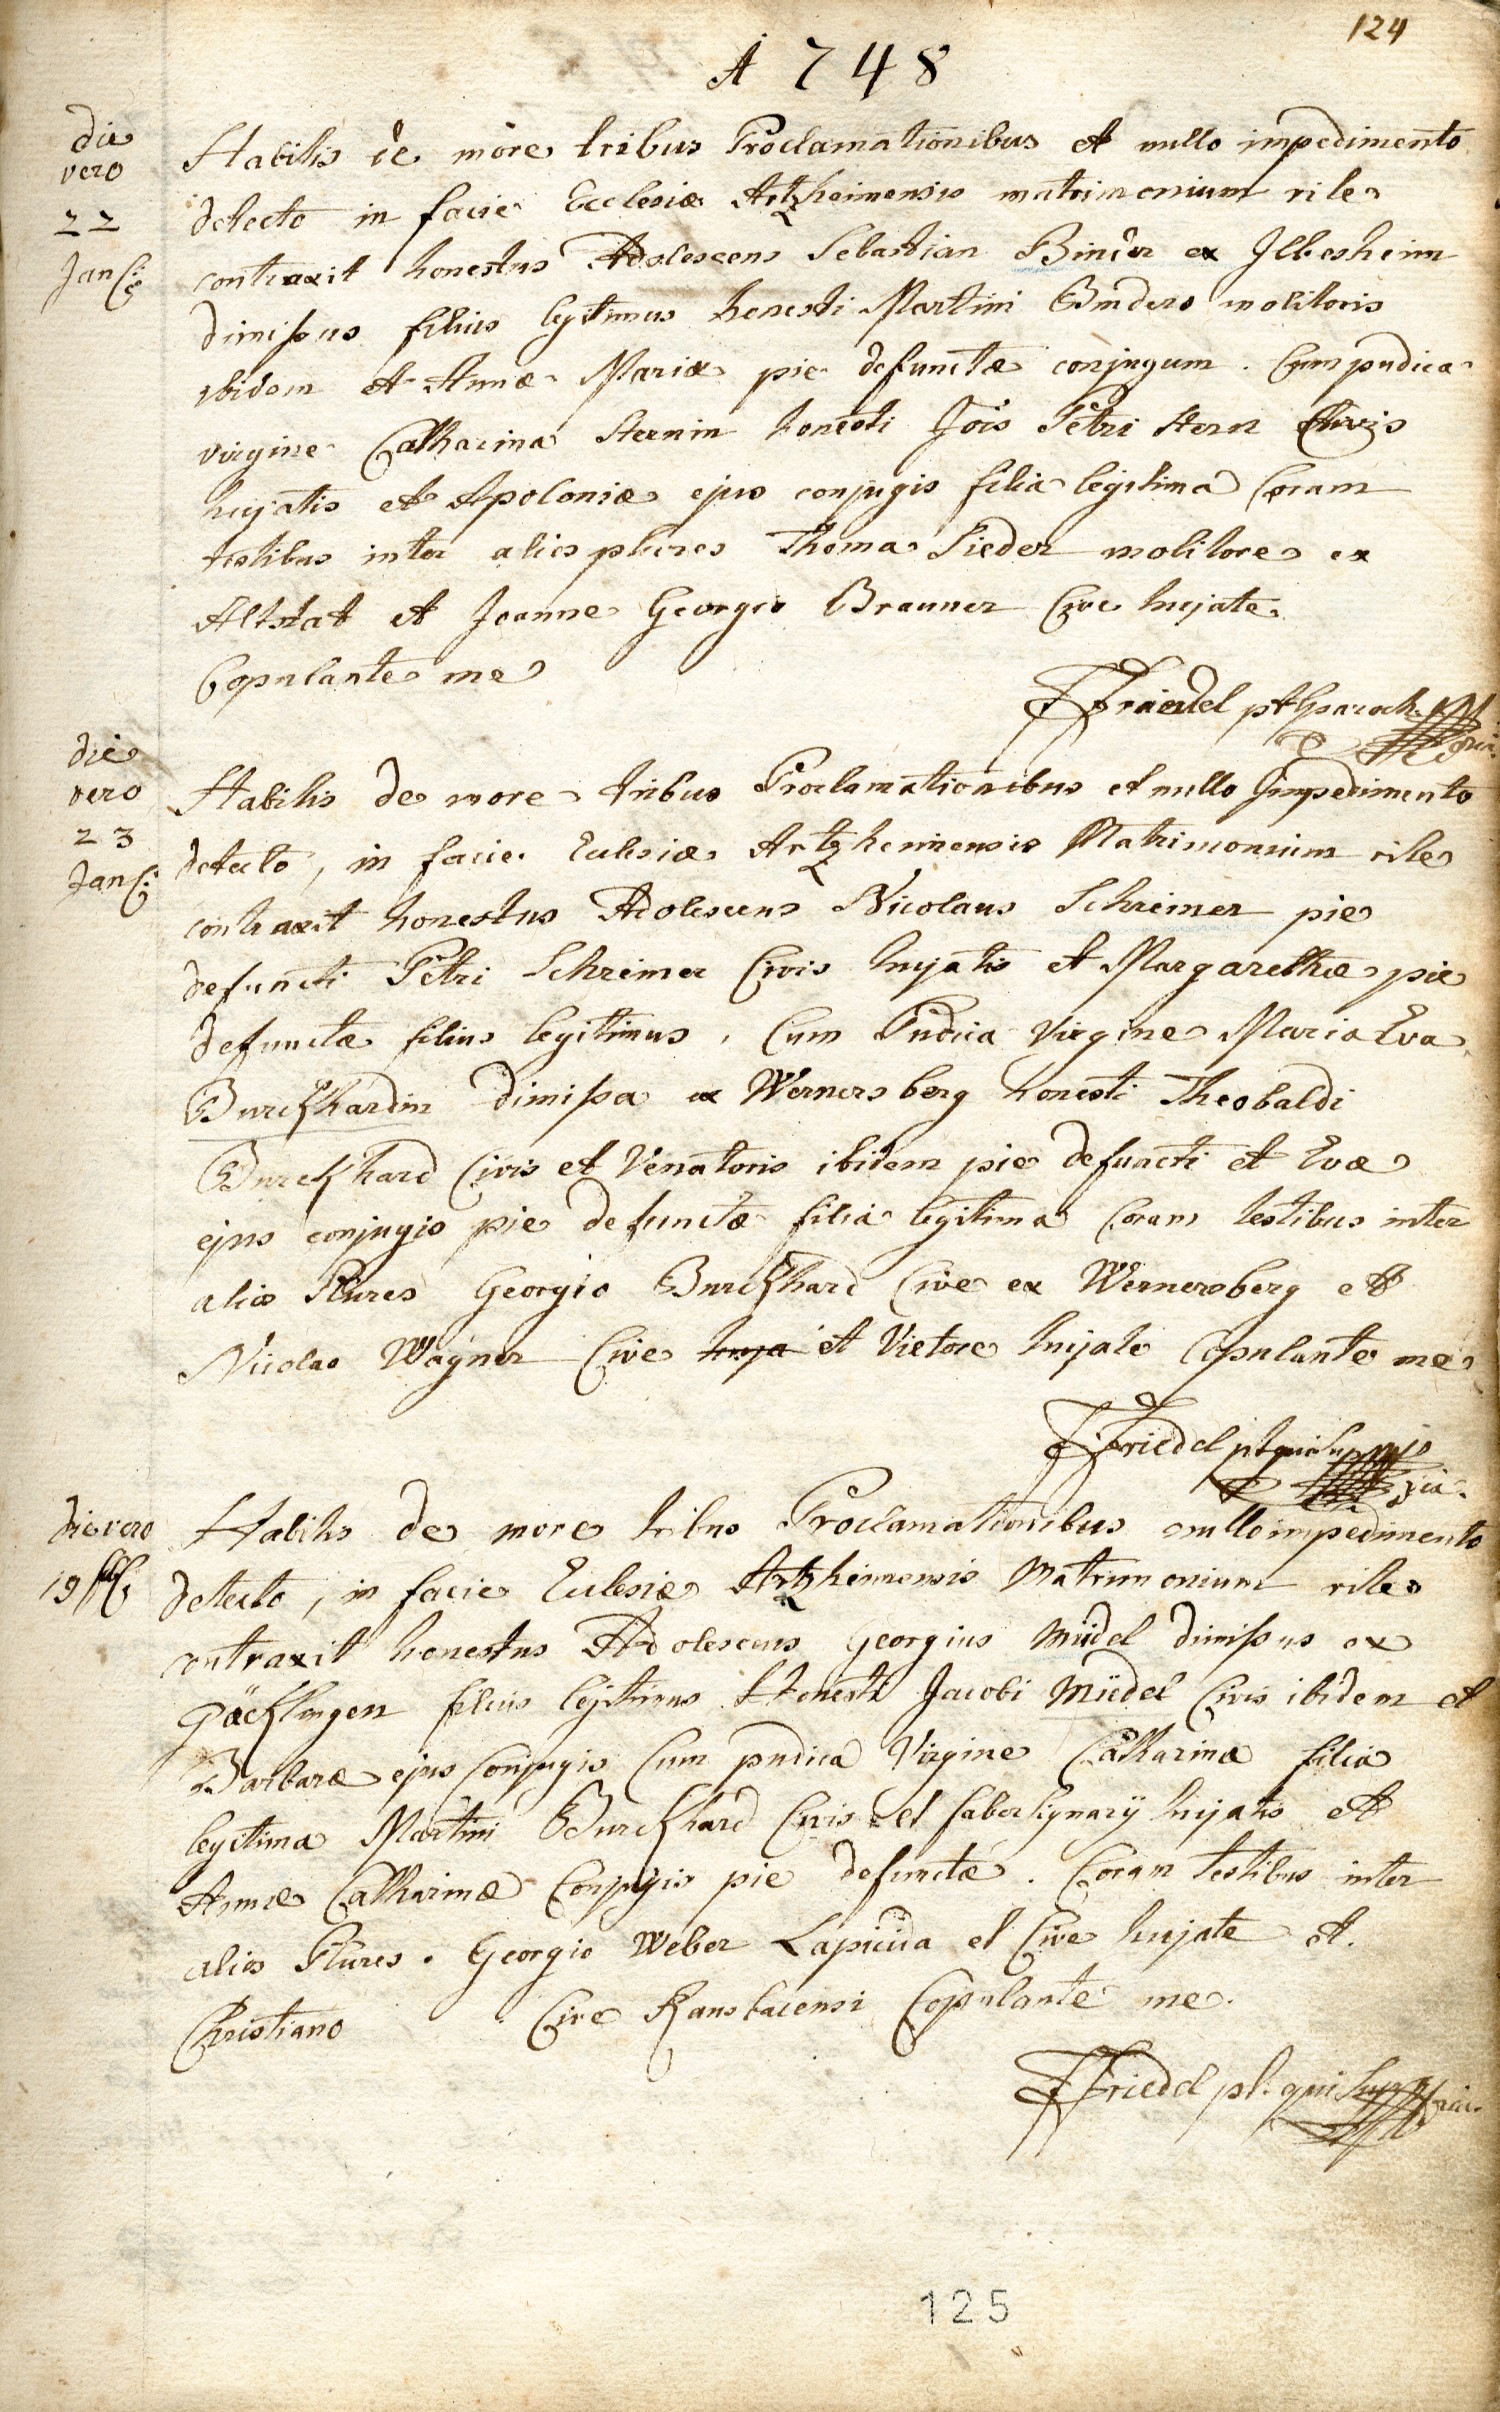 124
A 748
die
vero
22
Jan
Habitis de more tribus Proclamationibus et nullo impedimento
detecto in facie Ecclesiæ Artzheimensis matrimonium rite
contraxit honestus Adolescens Sebastian Binder ex Ilbesheim
dimissus filius legitimus honesti Martini Binders molitoris
ibidem et Annæ Mariæ pie defunctæ conjugum. Cum pudica
virgine Catharina Sternin honesti Jois Petri Stern Civis
hujatis et Apoloniæ ejus conjugis filia legitima Coram
testibus inter alios plures Thoma Sieder molitore ex
Altstat et Joanne Georgio Brauner Cive hujate
Copulante me
Friedel pt paroch.
die
vero
23
Jan
Habitis de more tribus Proclamationibus et nullo Impedimento
detecto, in facie Eclesiæ Artzheimensis Matrimonium rite
contraxit honestus Adolescens Nicolaus Schreiner pie
defuncti Petri Schreiner Civis hujatis et Margarethæ pie
defunctæ filius legitimus, Cum Pudica Virgine Maria Eva
Burckhardin dimissa ex Wernersberg honesti Theobaldi
Burckhard Civis et Venatoris ibidem pie defuncti et Evæ
ejus conjugis pie defunctæ filia legitima Coram testibus inter
alios Plures Georgio Burckhard Cive ex Wernersberg et
Nicolao Wagner Cive huja et Vietore hujate Copulante me
Friedel pt qui supra
die vero
19
Habitis de more tribus Proclamationibus nullo impedimento
detecto, in facie Eclesiæ Artzheimensis Matrimonium rite
contraxit honestus Adolescens Georgius Müdel dimissus ex
Göcklingen filius legitimus Honesti Jacobi Müdel Civis ibidem et
Barbaræ ejus Conjugis Cum pudica Virgine Catharina filia
legitima Martini Burckhard Civis et faber lignarÿ hujatis et
Annæ Catharinæ Conjugis pie defunctæ. Coram Testibus inter
alios Plures. Georgio Weber Lapicida et Cive hujate et.
Christiano Cive Ransbacensi Copulante me.
Friedel pt. qui supra
125